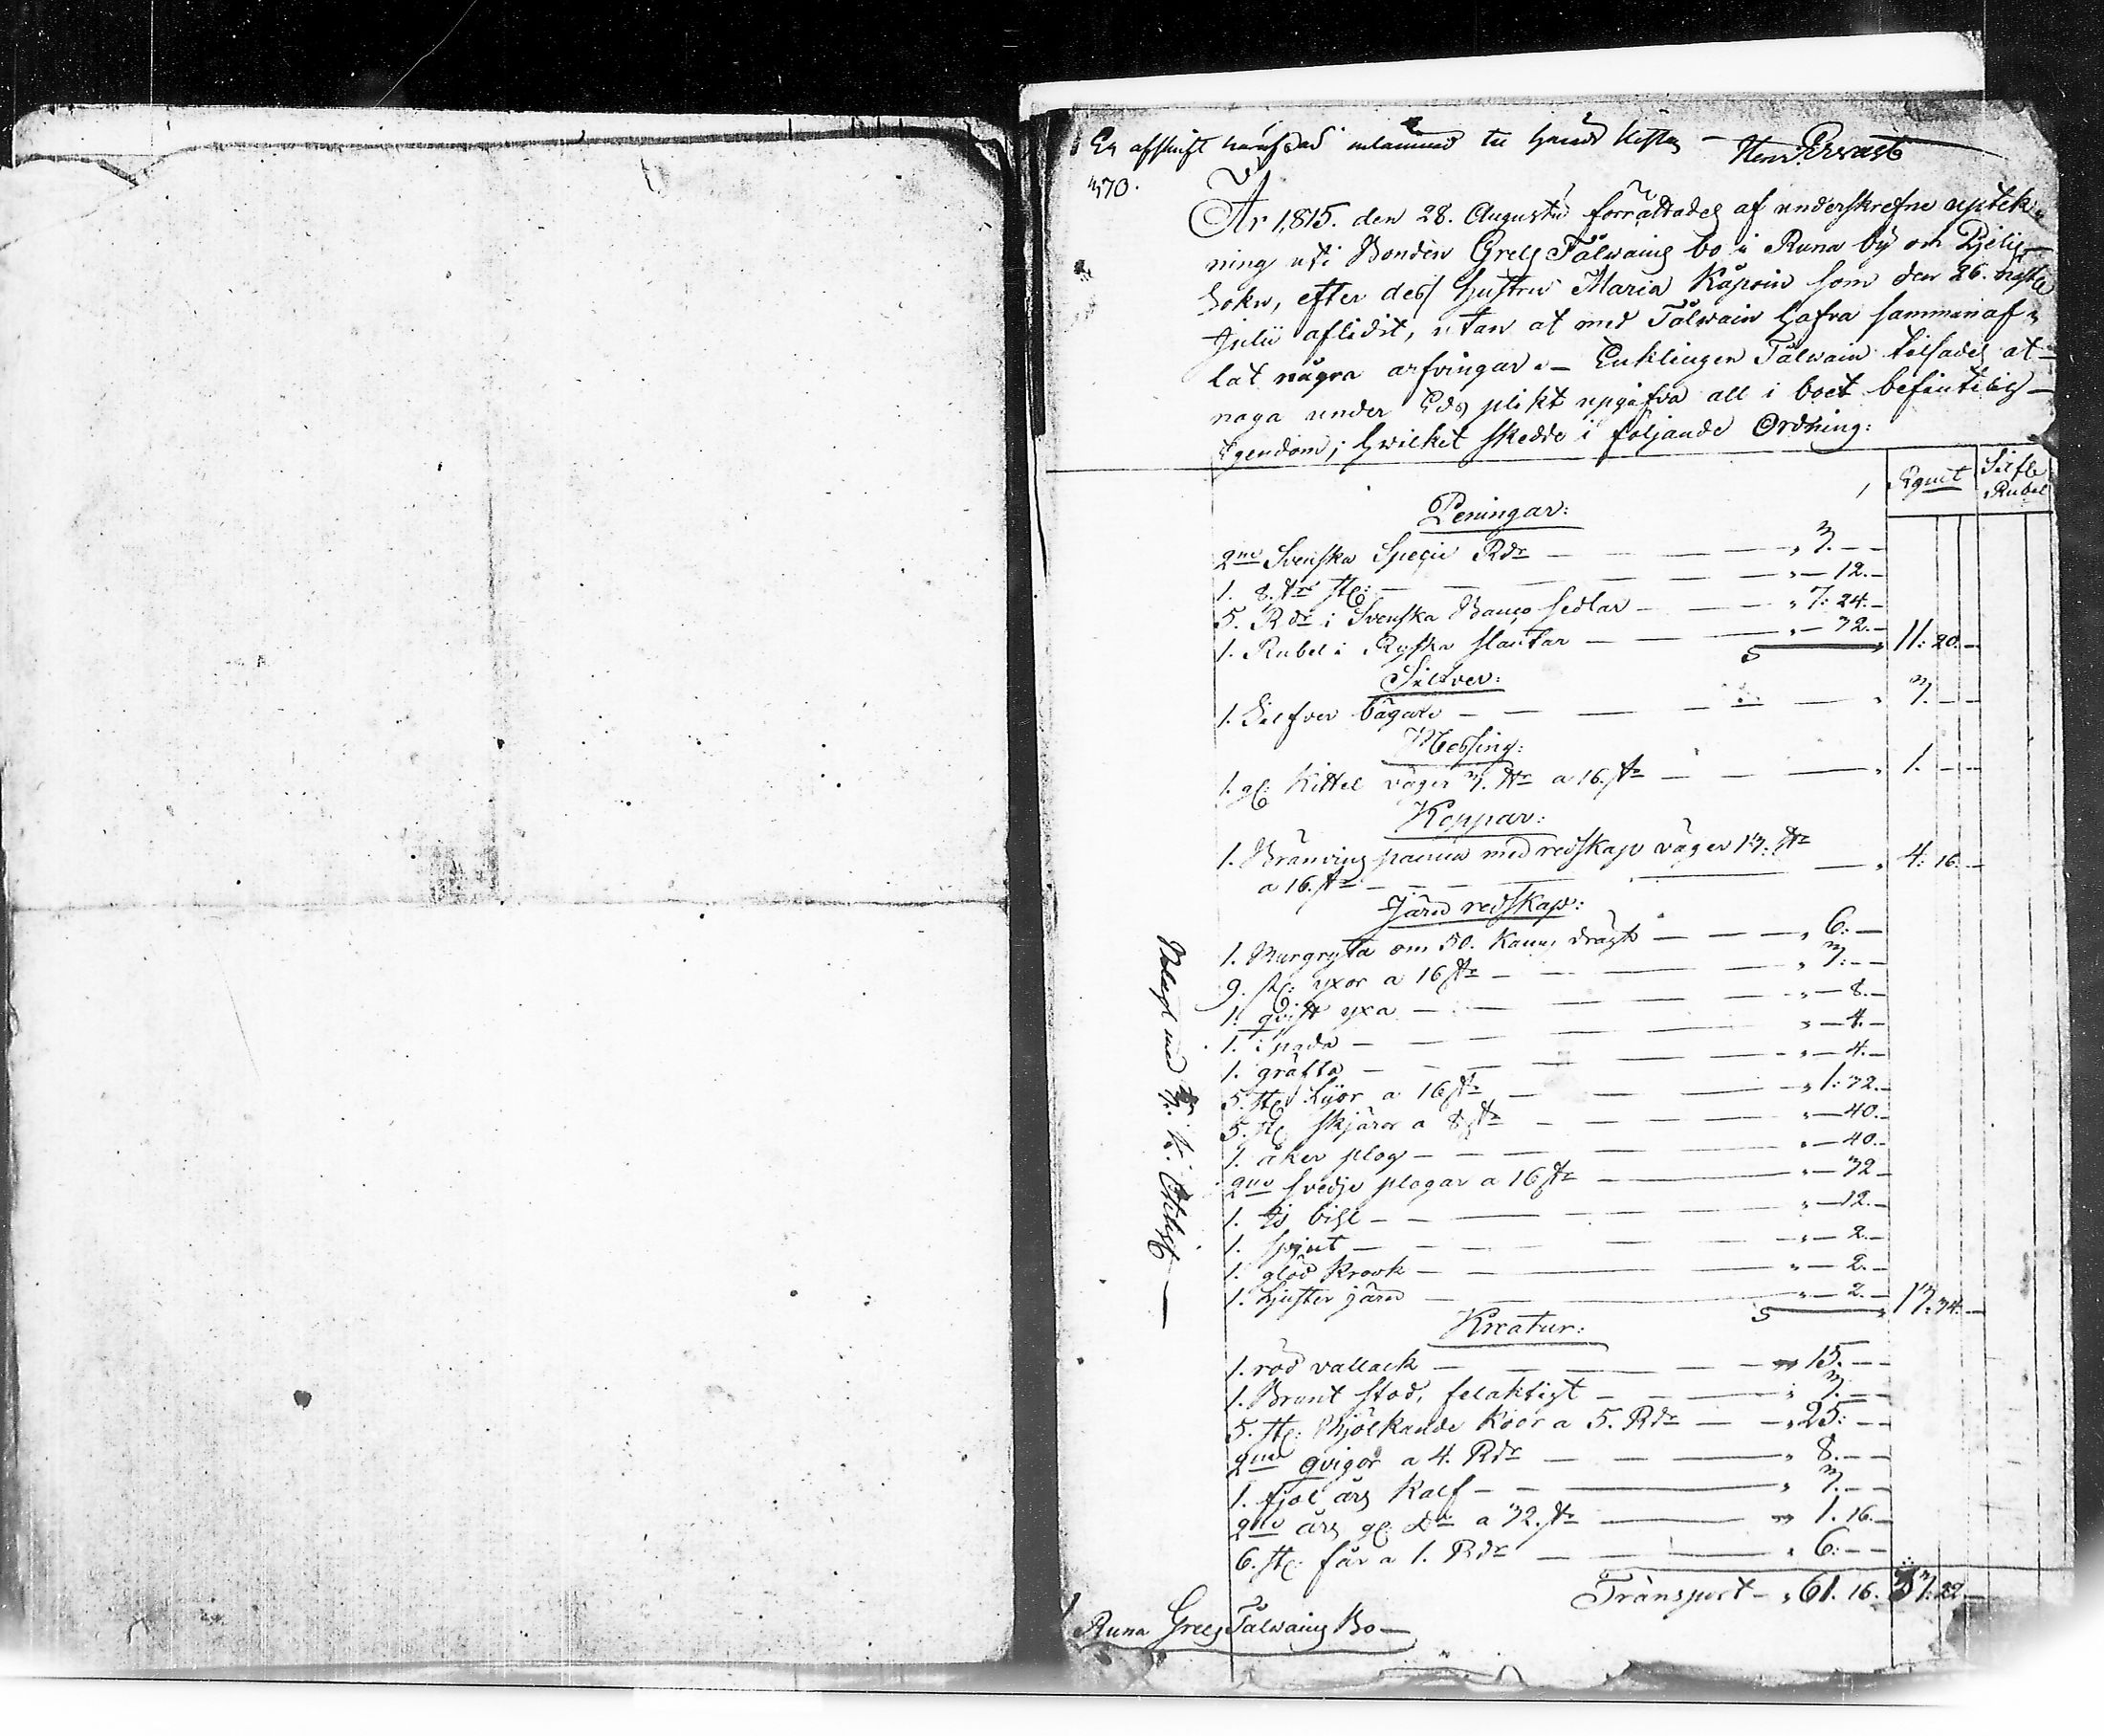 En afskrift häraf inlämnad til
№70.
År 1815. den 28. Augusti förrättades af underskrefne uptek-
ning uti Bonden Grels Tålvains bo i Runa by om Pjelis-
Sokn, efter dess hustru Maria Käpoin som den 26. nästl
Julii aflidit, utan at med Tålvain hafva sammanaf-
lat några arfvingar. — Enklingen Tålvain tilsades at
noga under Eds plikt upgifva all i boet befintelig
Egendom; hvilket skedde i följande Ordning:
Rgmt Silfv Rubel
Peningar:
2ne Svenska Specie Rdr — 3. —
1. 8. sk: st: — — 12. —
5. Rdr i Svenska Banco sedlar — 7: 24. —
1. Rubel i Ryska slantar — — 32. —
S 11: 20. —
Silfver:
1. Silfver bägare — 3. —
Messing:
1. gl: Kittel väger 3. ℔ a 16. sk — 1. —
Koppar:
1. Bränvins panna med redskap väger 13. ℔
a 16. sk — 4: 16. —
Järn redskap:
1. Murgryta om 50. Kanns drägt — 6: —
9. st: yxor a 16 sk — 3: —
1. qvist yxa — — 8. —
1. spada — — 4. —
1. gräfta — — 4. —
5. st: Lijor a 16 sk — 1: 32. —
5. st: skjäror a 8 sk — — 40. —
1. åker plog — — 40. —
2ne svedje plogar a 16 sk — — 32 —
1. is bihl — — 12. —
1. spjut — — 2. —
1. glöd krovk — — 2. —
1. Ljuster järn — — 2. —
S 13: 34. —
Kreatur:
1. röd vallack — 15. —
1. Brunt stod, felaktigt — 3. —
5. st: Mjölkande Koor a 5. Rdr — 25: —
2ne qvigor a 4. Rdr — 8. —
1. fjol års Kalf — 3. —
2ne års gl: do a 32. sk — 1. 16. —
6. st: får a 1. Rdr — 6: —
Transport — 61. 16. 33: 22. —
Runa Grels Tålvains Bo —